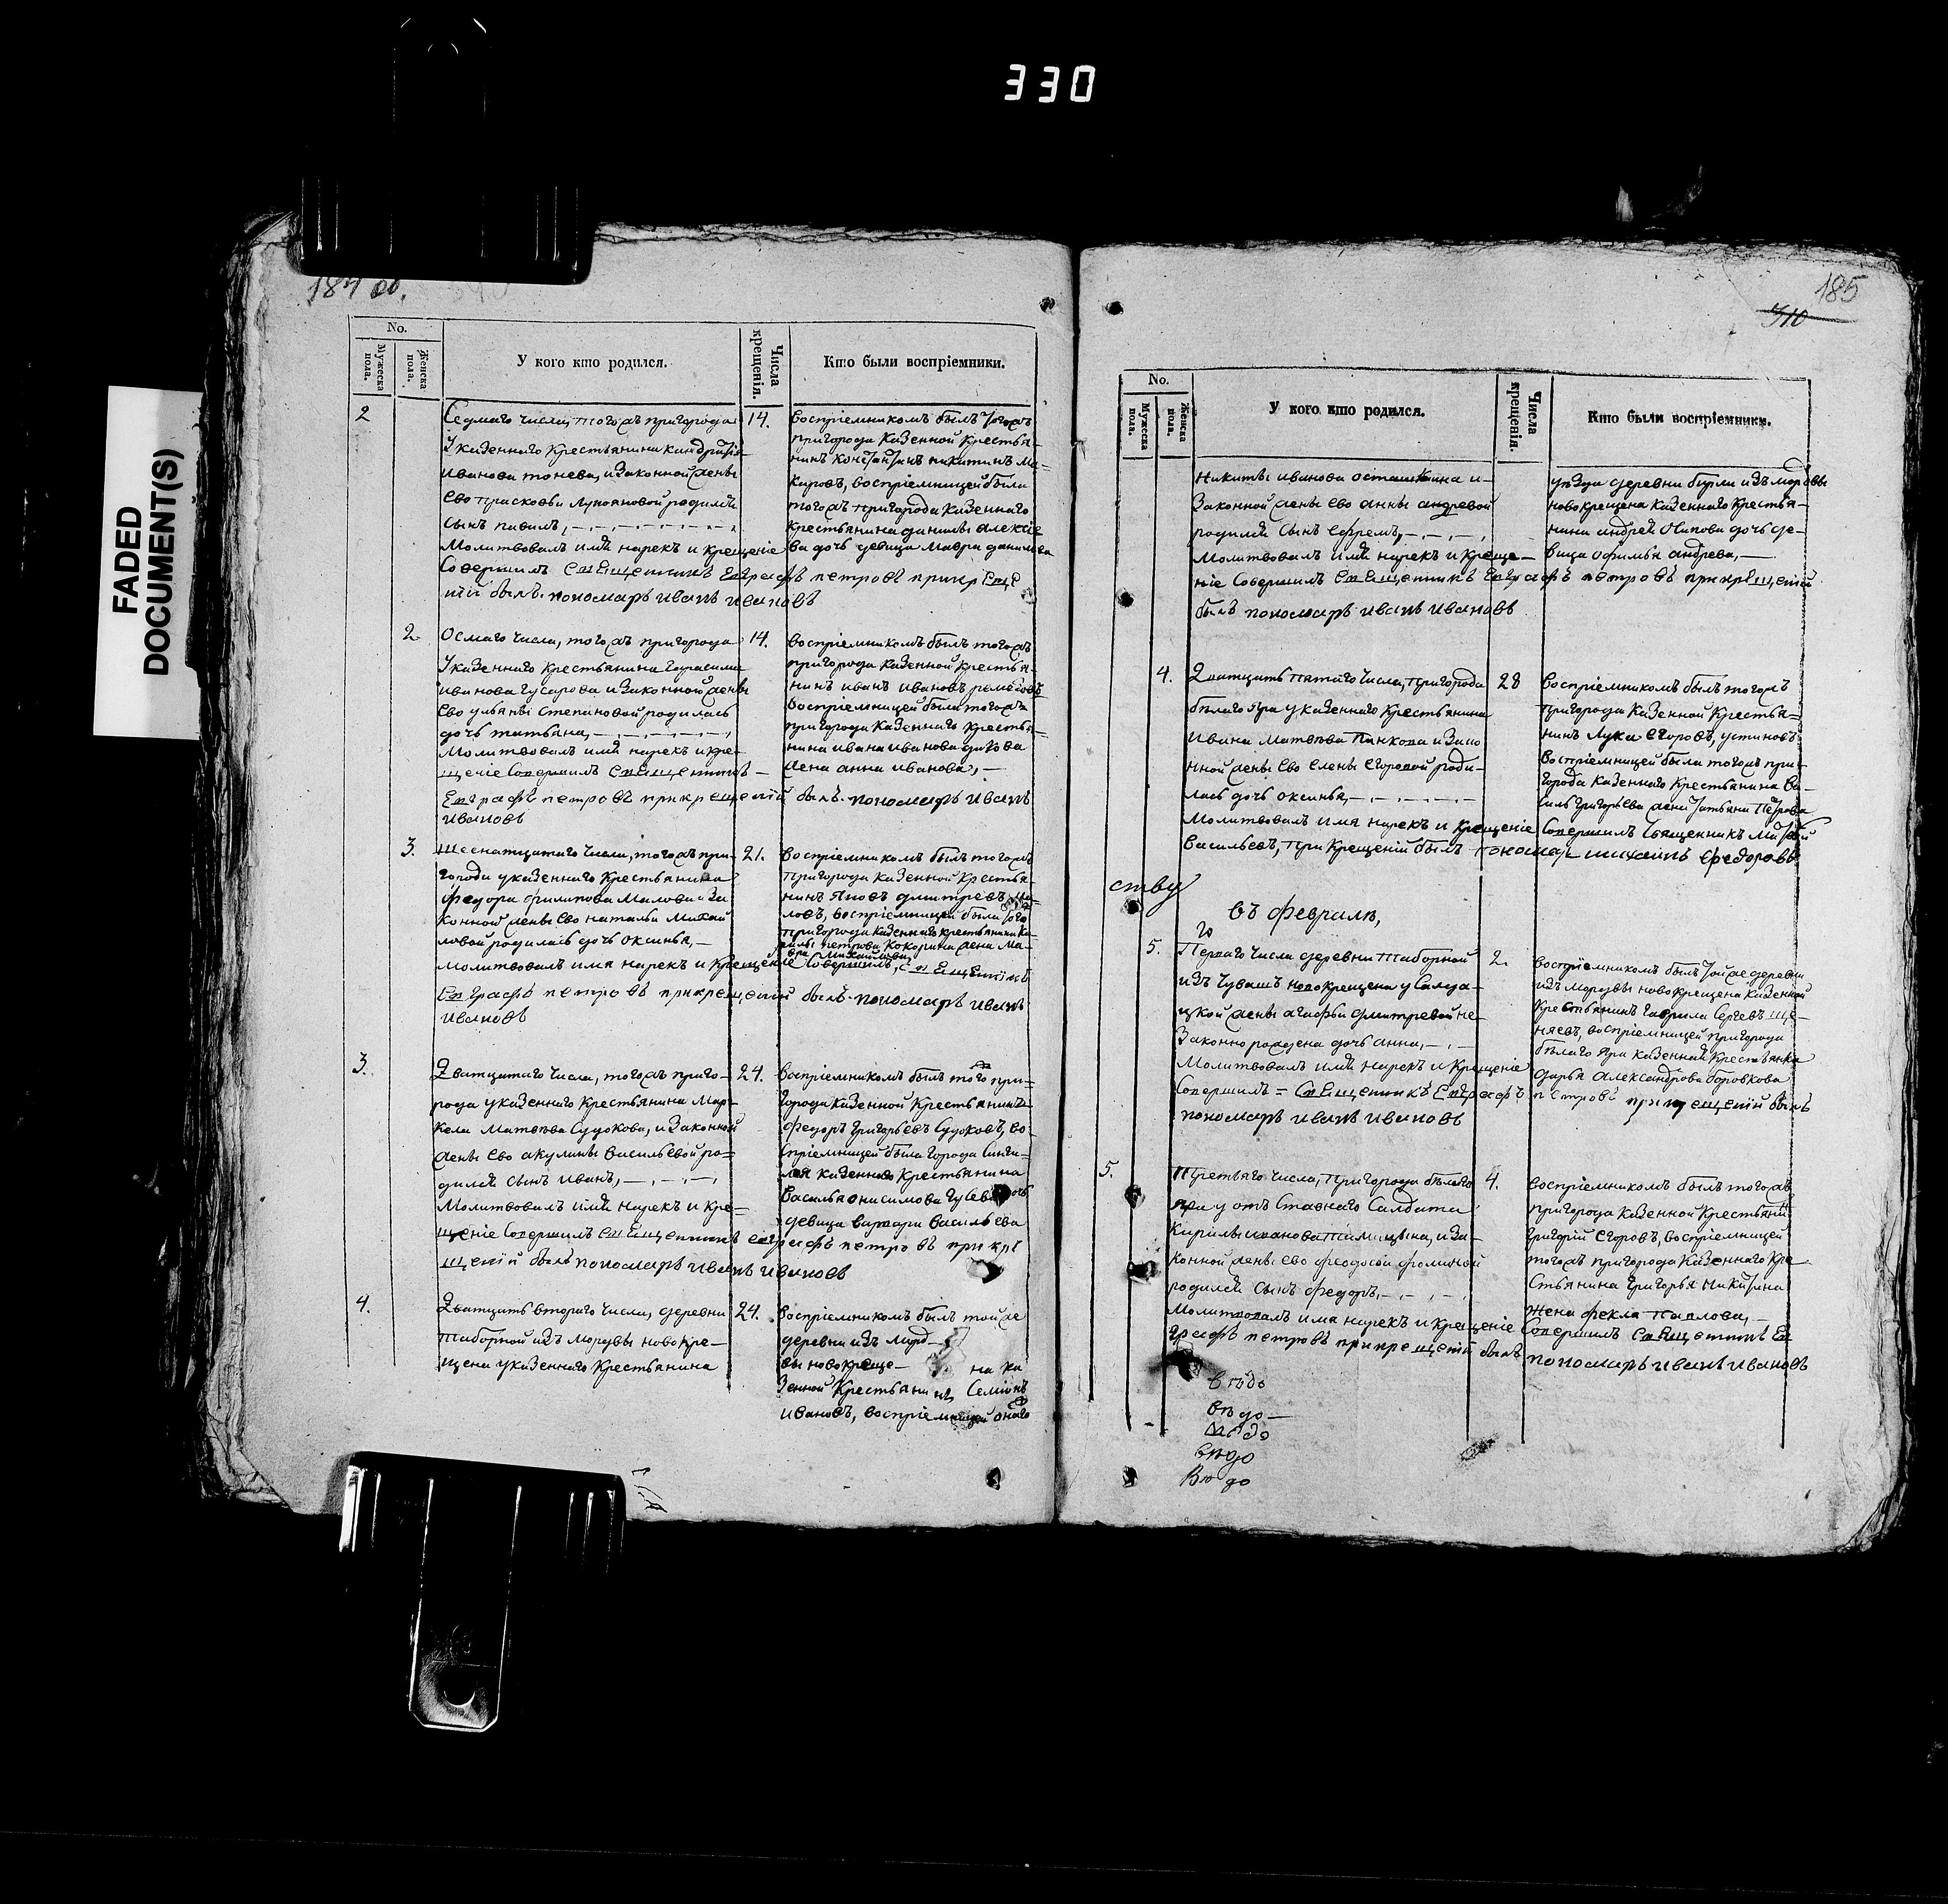 330
FADED
DOCUMENT(S)
187 об.
No.
Мужеска пола.
Женска пола.
У кого кто родился.
Числа крещенія.
Кто были воспріемники.
2
Седмаго числа, тогожъ пригорода
14.
Указеннаго крестьянина
Иванова тонева, и законной жены
Ево прасковьи Лукояновой родился
сынъ павилъ,
Молитвовалъ имя нарекъ и крещеніе
Совершилъ священникъ Евграфъ петровъ при креще
ніи былъ пономарь иванъ ивановъ
воспріемникомъ былъ тогожъ
пригорода казенной крестья-
нинъ константинъ никитинъ ма-
каровъ, воспріемницей была
тогожъ пригорода казеннаго
крестьянина данилы алексіе
ва дочь девица мавра данилова
2
Осмаго числа, тогожъ пригорода
14.
Указеннаго крестьянина Герасима
иванова гусарова и законной жены
Ево ульяны степановой родилась
дочь татьяна,
Молитвовалъ имя нарекъ и кре-
щеніе совершилъ священникъ
Евграфъ петровъ при крещеніи былъ пономарь иванъ
ивановъ
воспріемникомъ былъ тогожъ
пригорода казенной крестья-
нинъ иванъ ивановъ
воспріемницей была тогожъ
пригорода казеннаго крестья-
нина ивана иванова дикова
жена анна иванова,
3.
Шеснатцатаго числа, тогожъ при-
21.
города указеннаго крестьянина
федора филипова Малова и за
конной жены Ево натальи Михай
ловой родилась дочь оксинья,
Молитвовалъ имя нарекъ и крещеніе совершилъ священникъ
Евграфъ петровъ при крещеніи былъ пономарь иванъ
ивановъ
воспріемникомъ былъ тогожъ
пригорода казенной крестья-
нинъ яковъ дмитревъ
ловъ, воспріемницей была того
пригорода казеннаго крестьянина
петрова кокорина жена ма-
вра Михайлова
3.
Дватцатаго числа, тогожъ приго-
24.
рода указеннаго крестьянина мар-
кела Матвѣва Судокова, и законной
жены Ево акулины васильевой ро-
дился сынъ иванъ,
Молитвовалъ имя нарекъ и кре-
щеніе совершилъ священникъ евграфъ петровъ при кре
щеніи былъ пономарь иванъ ивановъ
воспріемникомъ былъ того при-
города казенной крестьянинъ
федоръ григорьевъ Судоковъ, во-
спріемницей была города
казеннаго крестьянина
василья онисимова дочь
девица варвара васильева
4.
Дватцать втораго числа, деревни
24.
таборной изъ мордвы новокре-
щена указеннаго крестьянина
воспріемникомъ былъ тойже
деревни изъ морд-
вы новокреще- на ка
зенной крестьянинъ Семіонъ
ивановъ, воспріемницей онаго
185
310
No.
Мужеска пола.
Женска пола.
У кого кто родился.
Числа крещенія.
Кто были воспріемники.
Никиты иванова осташкина и
Законной жены ево анны андревой
родился сынъ ефремъ,
Молитвовалъ имя нарекъ и креще-
ніе совершилъ священникъ Евграфъ петровъ при крещеніи
былъ пономарь иванъ ивановъ
уѣзда деревни бурли изъ мордвы
новокрещена казеннаго крестья-
нина андрея Осипова дочь де-
вица офимья андрева,
4.
Дватцать пятаго числа, пригорода
28
бѣлаго яра указеннаго крестьянина
ивана матвѣва панкова и зако
нной жены ево елены егоровой роди-
лась дочь оксинья,
Молитвовалъ имя нарекъ и крещеніе совершилъ священникъ матвей
васильевъ, при крещеніи былъ пономарь михаилъ федоровъ
воспріемникомъ былъ тогожъ
пригорода казенной крестья-
нинъ лука егоровъ, устиновъ
воспріемницей была тогожъ при-
города казеннаго крестьянина ва-
силья григорьева жена татьяна петрова
ству
въ февралѣ,
5.
Перваго числа деревни таборной
2.
изъ чувашъ новокрещена у салда-
цкой жены агафьи дмитревой не-
законно рождена дочь анна,
Молитвовалъ имя нарекъ и крещеніе
совершилъ священникъ Евграфъ петровъ при крещеніи былъ
пономарь иванъ ивановъ
воспріемникомъ былъ тойже деревни
изъ мордвы новокрещена казенной
крестьянинъ гаврила сергевъ ще-
няевъ, воспріемницей пригорода
бѣлаго яра казенная крестьянка
дарья александрова боровкова
5.
Третьяго числа, пригорода бѣлаго
4.
яра у отъставнаго салдата
кирилы иванова и за-
конной жены ево феодосьи фоминой
родился сынъ федоръ,
Молитвовалъ имя нарекъ и крещеніе совершилъ священникъ Ев
графъ петровъ при крещеніи былъ пономарь иванъ ивановъ
воспріемникомъ былъ тогожъ
пригорода казенной крестьянинъ
григорій егоровъ, воспріемницей
тогожъ пригорода казеннаго кре
стьянина григорья никитина
жена фекла павлова,